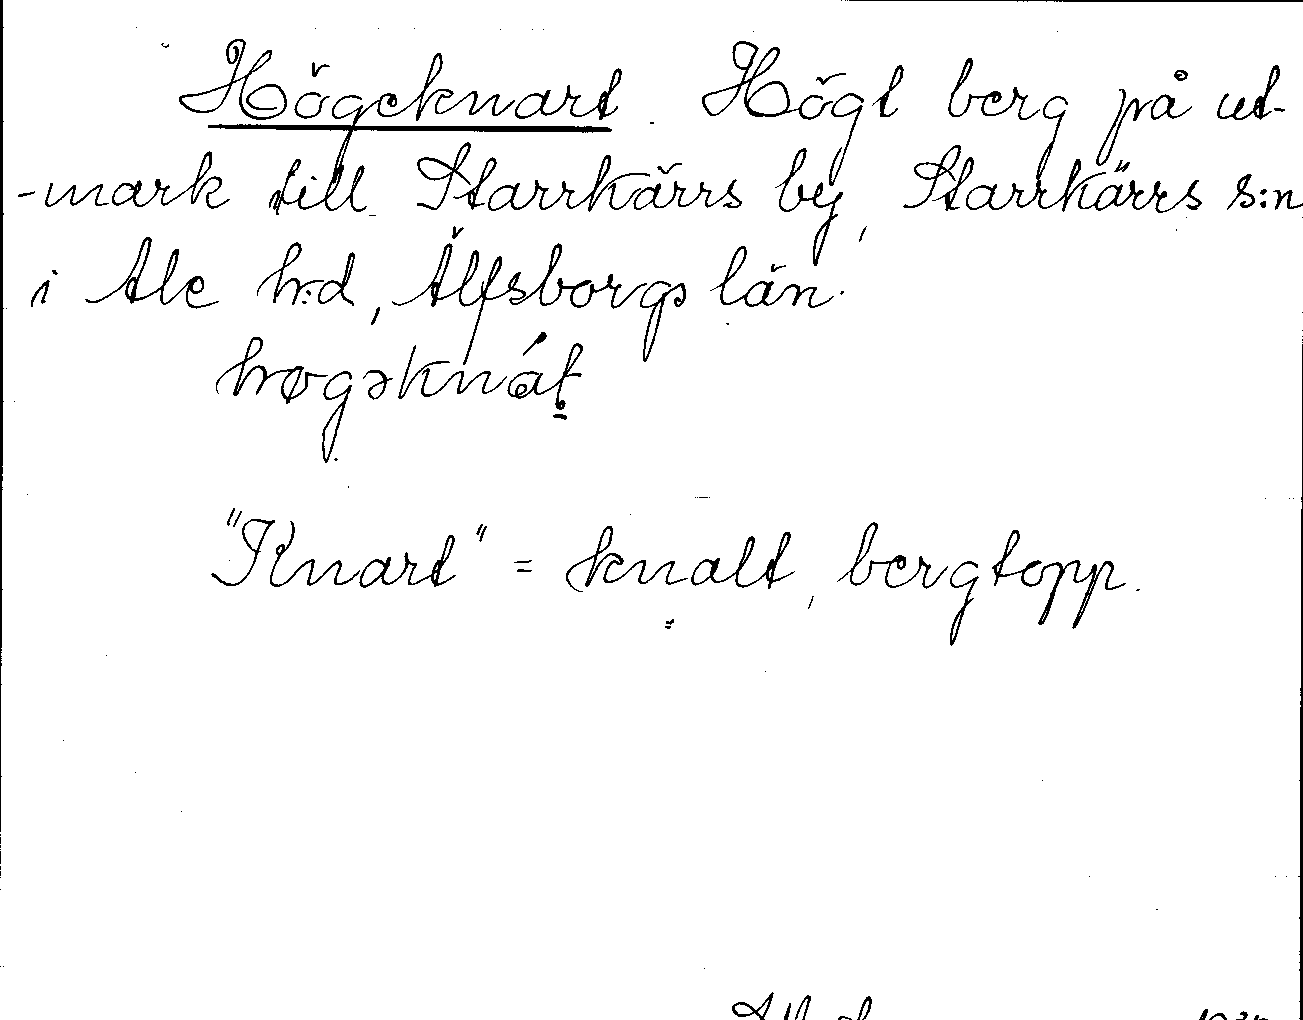 Högeknart. Högt berg på ut-
-mark till Starrkärrs by, Starrkärrs s:n
i Ale h:d, Älfsborgs län.
høgəknát̠
"Knart" = knalt, bergtopp.